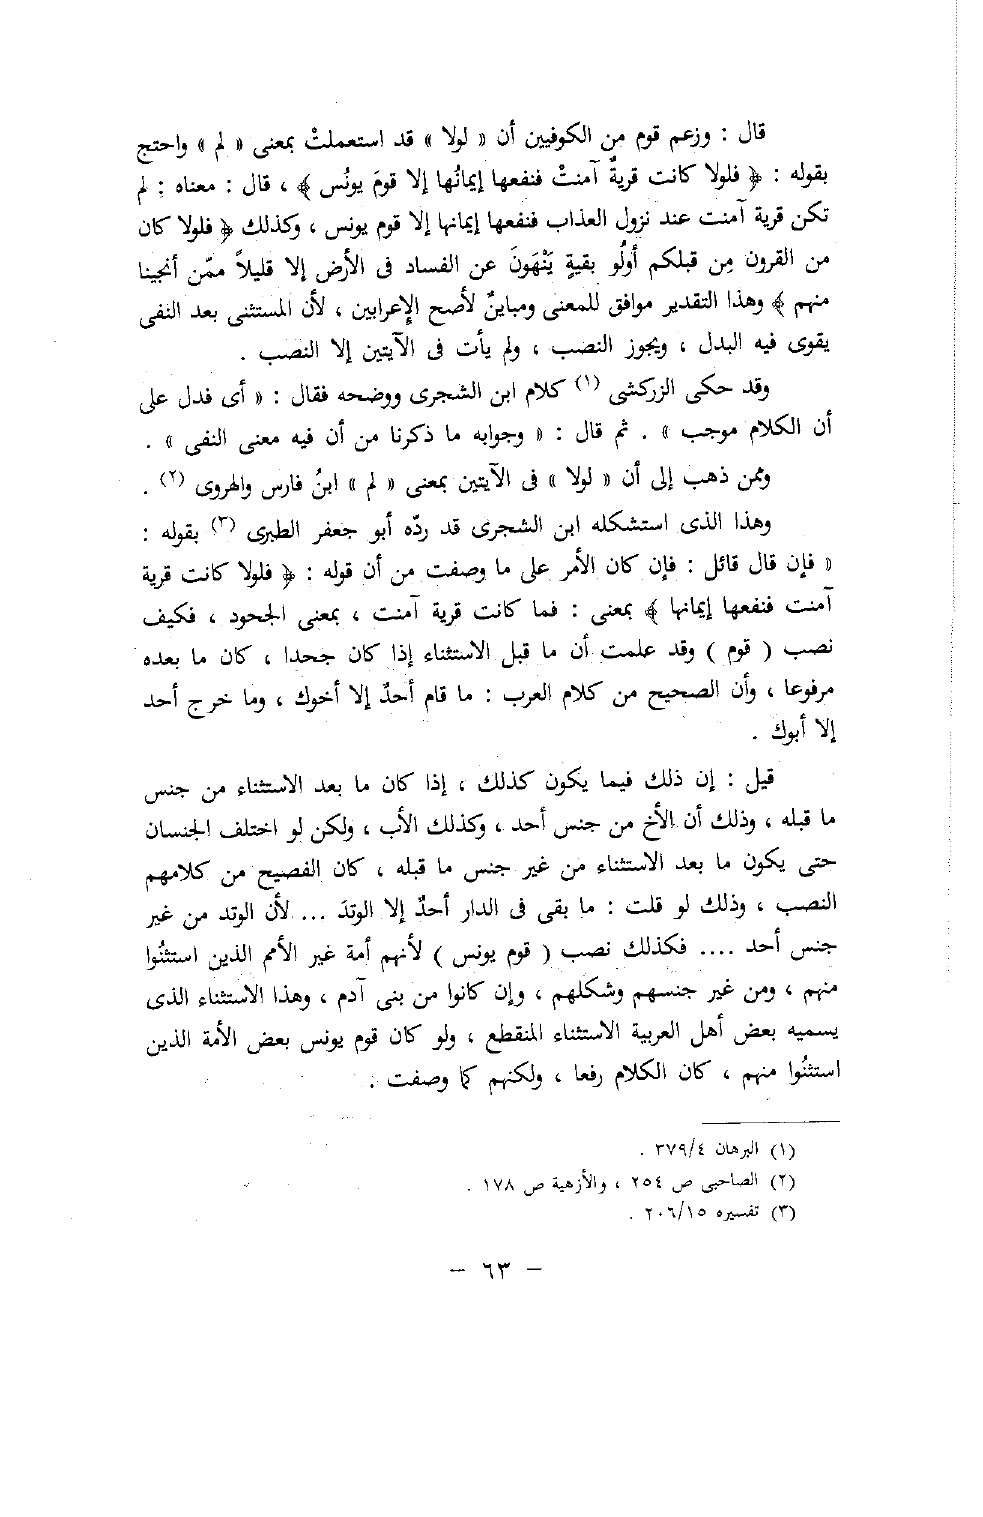 قال : وزعم قوم من الكوفيين أن « لولا » قد استعملتْ بمعنى « لم » واحتج
بقوله : ﴿ فلولا كانت قريةٌ آمنتْ فنفعها إيمانُها إلا قومَ يونُس ﴾ ، قال : معناه : لم
تكن قرية آمنت عند نزول العذاب فنفعها إيمانها إلا قوم يونس ، وكذلك ﴿ فلولا كان
من القرون مِن قبلكم أولُو بقيةٍ يَنْهَونَ عن الفساد فى الأرض إلا قليلاً ممّن أنجينا
منهم ﴾ وهذا التقدير موافق للمعنى ومباينٌ لأصح الإعرابين ، لأن المستثنى بعد النفى
يقوى فيه البدل ، ويجوز النصب ، ولم يأت فى الآيتين إلا النصب .
وقد حكى الزركشى (١) كلام ابن الشجرى ووضحه فقال : « أى فدل على
أن الكلام موجب » . ثم قال : « وجوابه ما ذكرنا من أن فيه معنى النفى » .
وممن ذهب إلى أن « لولا » فى الآيتين بمعنى « لم » ابنُ فارس والهروى (٢) .
وهذا الذى استشكله ابن الشجرى قد ردّه أبو جعفر الطبرى (٣) بقوله :
« فإن قال قائل : فإن كان الأمر على ما وصفت من أن قوله : ﴿ فلولا كانت قرية
آمنت فنفعها إيمانها ﴾ بمعنى : فما كانت قرية آمنت ، بمعنى الجحود ، فكيف
نصب ( قوم ) وقد علمت أن ما قبل الاستثناء إذا كان جحدا ، كان ما بعده
مرفوعا ، وأن الصحيح من كلام العرب : ما قام أحدٌ إلا أخوك ، وما خرج أحد
إلا أبوك .
قيل : إن ذلك فيما يكون كذلك ، إذا كان ما بعد الاستثناء من جنس
ما قبله ، وذلك أن الأخ من جنس أحد ، وكذلك الأب ، ولكن لو اختلف الجنسان
حتى يكون ما بعد الاستثناء من غير جنس ما قبله ، كان الفصيح من كلامهم
النصب ، وذلك لو قلت : ما بقى فى الدار أحدٌ إلا الوتدَ ... لأن الوتد من غير
جنس أحد .... فكذلك نصب ( قوم يونس ) لأنهم أمة غير الأمم الذين استثنُوا
منهم ، ومن غير جنسهم وشكلهم ، وإن كانوا من بنى آدم ، وهذا الاستثناء الذى
يسميه بعض أهل العربية الاستثناء المنقطع ، ولو كان قوم يونس بعض الأمة الذين
استثنُوا منهم ، كان الكلام رفعا ، ولكنهم كما وصفت .
(١) البرهان ٣٧٩/٤ .
(٢) الصاحبى ص ٢٥٤ ، والأزهية ص ١٧٨ .
(٣) تفسيره ٢٠٦/١٥ .
– ٦٣ –